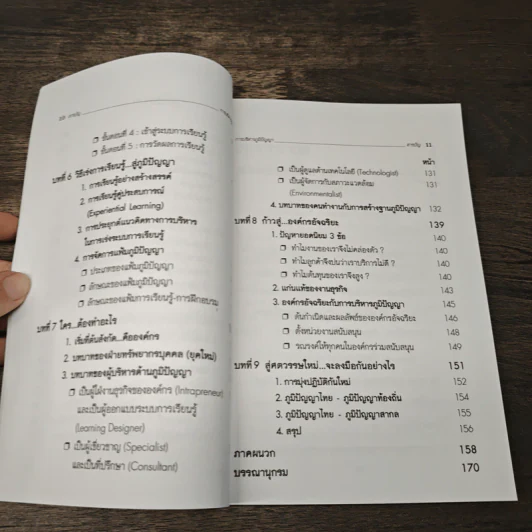 10 สารบัญ
❒ ขั้นตอนที่ 4 : เข้าสู่ระบบการเรียนรู้
❒ ขั้นตอนที่ 5 : การวัดผลการเรียนรู้
บทที่ 6 วิธีเร่งการเรียนรู้...สู่ภูมิปัญญา
1. การเรียนรู้อย่างสร้างสรรค์
2. การเรียนรู้คู่ประสบการณ์
(Experiential Learning)
3. การประยุกต์แนวคิดทางการบริหาร
ในการเร่งระบบการเรียนรู้
4. การจัดการแฟ้มภูมิปัญญา
❒ ประเภทของแฟ้มภูมิปัญญา
❒ ลักษณะของแฟ้มภูมิปัญญา
❒ ลักษณะของแฟ้มการเรียนรู้-การฝึกอบรม
บทที่ 7 ใคร...ต้องทำอะไร
1. เริ่มที่ต้นสังกัด...คือองค์กร
2. บทบาทของฝ่ายทรัพยากรบุคคล (ยุคใหม่)
3. บทบาทของผู้บริหารด้านภูมิปัญญา
❒ เป็นผู้ใฝ่งานธุรกิจขององค์กร (Intrapreneur)
และเป็นผู้ออกแบบระบบการเรียนรู้
(Learning Designer)
❒ เป็นผู้เชี่ยวชาญ (Specialist)
และเป็นที่ปรึกษา (Consultant)
การบริหารภูมิปัญญา สารบัญ 11
หน้า
❒ เป็นผู้ดูแลด้านเทคโนโลยี (Technologist) 131
❒ เป็นผู้จัดการกับสภาวะแวดล้อม 131
(Environmentalist)
4. บทบาทของคนทำงานกับการสร้างฐานภูมิปัญญา 132
บทที่ 8 ก้าวสู่...องค์กรอัจฉริยะ 139
1. ปัญหายอดนิยม 3 ข้อ 140
❒ ทำไมงานของเราจึงไม่คล่องตัว ? 140
❒ ทำไมลูกค้าจึงบ่นว่าเราบริการไม่ดี ? 140
❒ ทำไมต้นทุนของเราจึงสูง ? 140
2. แก่นแท้ของงานธุรกิจ 143
3. องค์กรอัจฉริยะกับการบริหารภูมิปัญญา 145
❒ ต้นกำเนิดและผลลัพธ์ขององค์กรอัจฉริยะ 146
❒ ตั้งหน่วยงานสนับสนุน 148
❒ รณรงค์ให้ทุกคนในองค์กรร่วมสนับสนุน 149
บทที่ 9 สู่ศตวรรษใหม่...จะลงมือกันอย่างไร 151
1. การมุ่งปฏิบัติกันใหม่ 152
2. ภูมิปัญญาไทย - ภูมิปัญญาท้องถิ่น 154
3. ภูมิปัญญาไทย - ภูมิปัญญาสากล 155
4. สรุป 156
ภาคผนวก 158
บรรณานุกรม 170